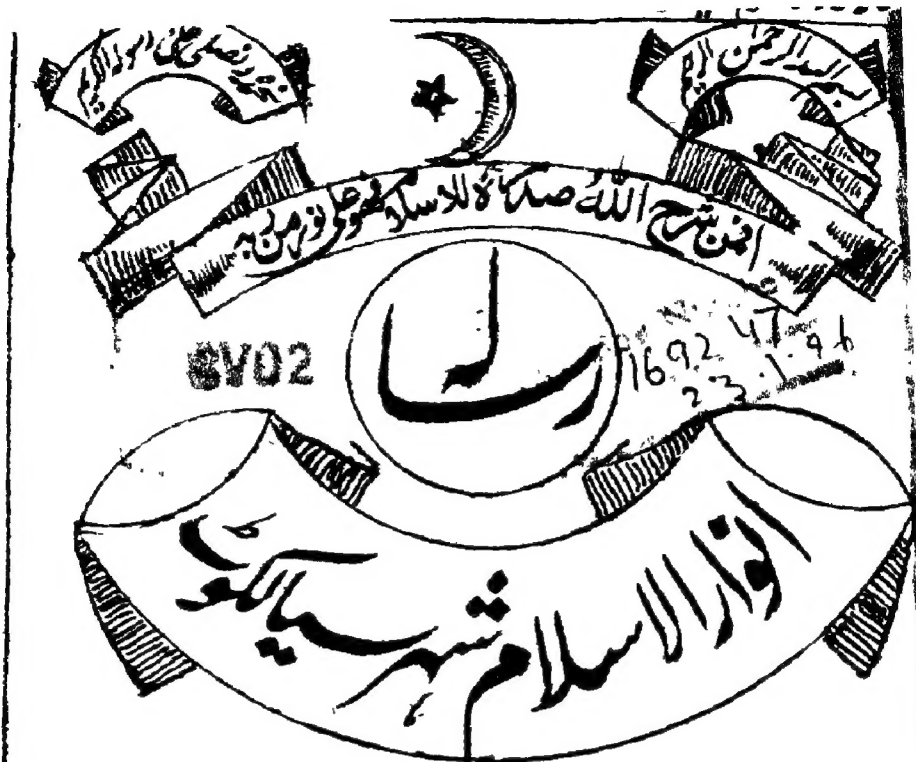 بسم اللہ الرحمن الرحیم
نحمدہ ونصلی علی رسولہ الکریم
افمن شرح اللہ صدرہ للاسلام فھو علی نور من ربہ
رسالہ
SV02
1692 47
23.1.96
انوار الاسلام شہر سیالکوٹ